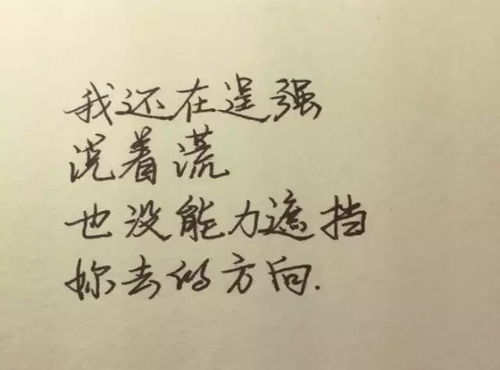 我还在逞强
说着谎
也没能力遮挡
妳去的方向.